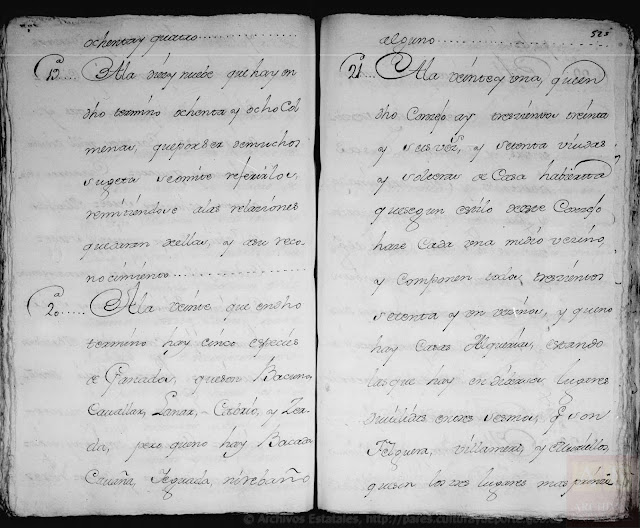 ochenta y quatro
19ª Ala diez y nuebe que hay en
dho termino ochenta y ocho Col
menas, que por ser de muchos
sugetos se omite referirlos,
remitiendose alas relaciones
que daran de ellas, y a su reco-
nocimiento
20ª Ala veinte que en dho
termino hay cinco especies
de Ganados, que son Bacuno,
Cauallar, Lanar, Cabrio, y Zer-
da, pero que no hay Bacada
Cauaña, Yeguada, ni rebaño
alguno
525
21ª Ala veinte y una, que en
dho Conzejo ay trescientos treinta
y seis vez.s, y setenta viudas
y solteras de Casa habierta
que segun estilo de este Conzejo
haze Cada una medio vezino,
y componen todos trescientos
setenta y un vezinos, y que no
hay Casas Alquerias, estando
las que hay en diversos lugares
diuididas en tres sesmas, q son
Felguera, Villameri, y
quien los tres lugares mas
© Archivos Estatales, http://pares.cultura